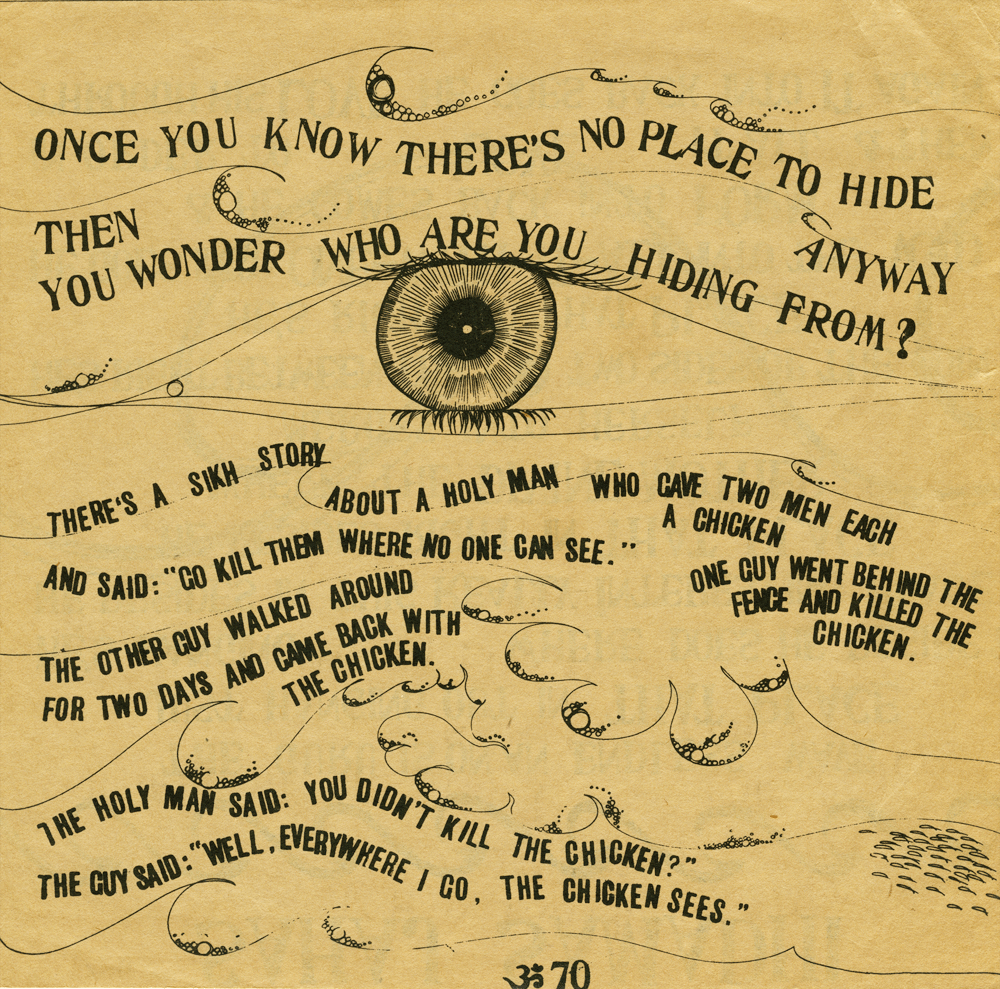 ONCE YOU KNOW THERE'S NO PLACE TO HIDE
ANYWAY
THEN
YOU WONDER WHO ARE YOU HIDING FROM?
THERE'S A SIKH STORY ABOUT A HOLY MAN WHO GAVE TWO MEN EACH
A CHICKEN
AND SAID: "GO KILL THEM WHERE NO ONE CAN SEE."
ONE GUY WENT BEHIND THE
FENCE AND KILLED THE
CHICKEN.
THE OTHER GUY WALKED AROUND
FOR TWO DAYS AND CAME BACK WITH
THE CHICKEN.
THE HOLY MAN SAID: YOU DIDN'T KILL THE CHICKEN?"
THE GUY SAID: "WELL, EVERYWHERE I GO, THE CHICKEN SEES."
ॐ 70